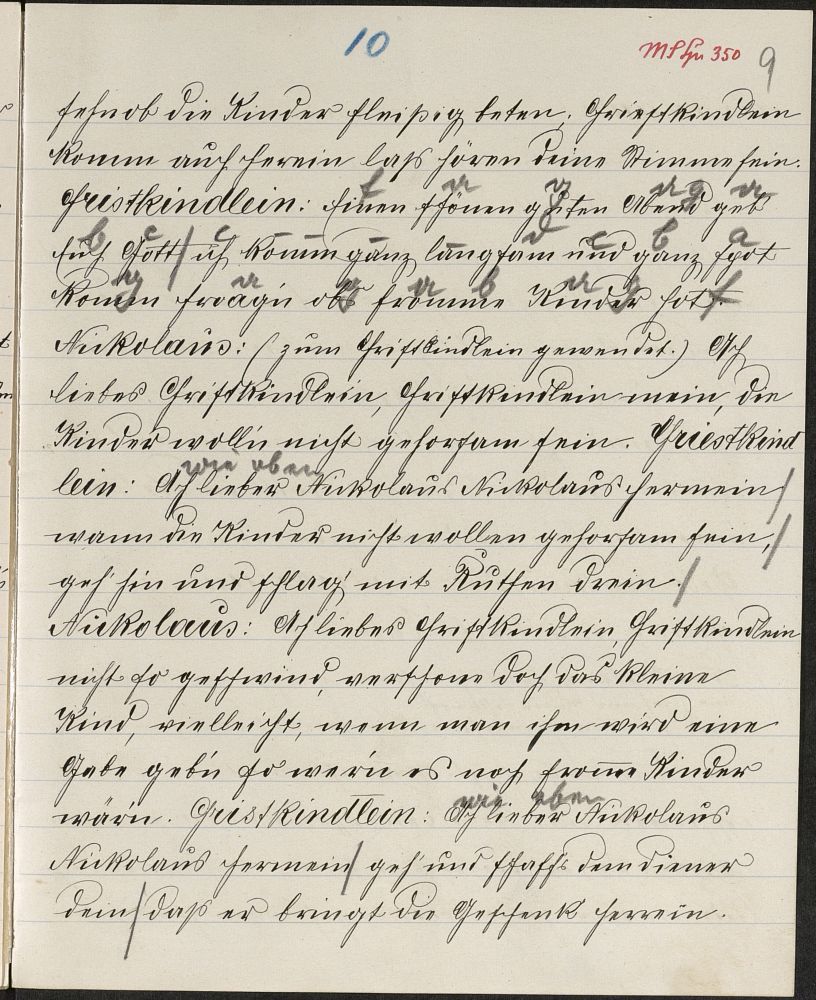 10
MSpr 350
9
sehn ob die Kinder fleißig beten. Christkindlein
komm auch herein lass hören deine Stimme fein.
Christkindlein: Einen schönen guten Abend geb
Euch Gott/ ich komm ganz langsam und ganz spot
Komm frag'n obs fromme Kinder hot/.
Nickolaus: (zum Christkindlein gewendet.) Ach
liebes Christkindlein, Christkindlein mein, die
Kinder woll'n nicht gehorsam sein. Christkind
wie oben
lein: Ach lieber Nickolaus Nickolaus hermein/
wann die Kinder nicht wollen gehorsam sein,/
geh' hin und schlag' mit Ruthen drein./
Nickolaus: Ach liebes Christkindlein, Christkindlein
nicht so geschwind, verschone doch das kleine
Kind, vielleicht, wenn man ihm wird eine
Gabe geb'n so wer'n es noch from̅e Kinder
wär'n. Christkindlein: Ach lieber Nickolaus
wie oben
Nickolaus hermein/ geh' und schaffs dem diener
dein/ daß er bringt die Geschenk herrein.